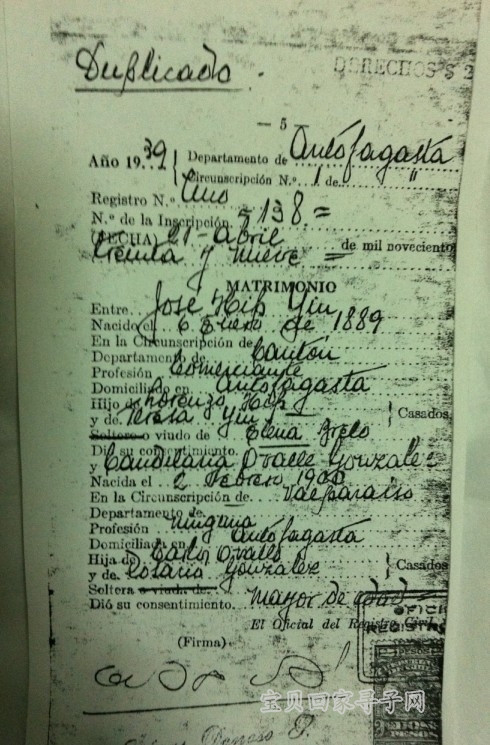 Duplicado
DERECHOS $ 2
— 5 —
Año 1939 Departamento de Antofagasta
Circunscripción N.º 1 de "
Registro N.º Uno
N.º de la Inscripción = 138 =
(FECHA) 21 - abril
treinta y nueve = de mil noveciento
MATRIMONIO
Entre José Hip Yiu
Nacido el 6 Enero de 1889
En la Circunscripción de
Departamento de Cantón
Profesión Comerciante
Domiciliado en Antofagasta
Hijo de Lorenzo Hip
y de Teresa Yiu Casados,
Soltero o viudo de Elena
Dió su consentimiento
y Candelaria Ovalle Gonzalez
Nacida el 2 Febrero 1900
En la Circunscripción de Valparaiso
Departamento de
Profesión ninguna
Domiciliada en Antofagasta
Hija de Ovalle
y de Rosario Gonzalez Casados
Soltera o viuda de
Dió su consentimiento mayor de edad
OFICI
REGISTR
El Oficial del Registro Civil,
(Firma)
宝贝回家寻子网